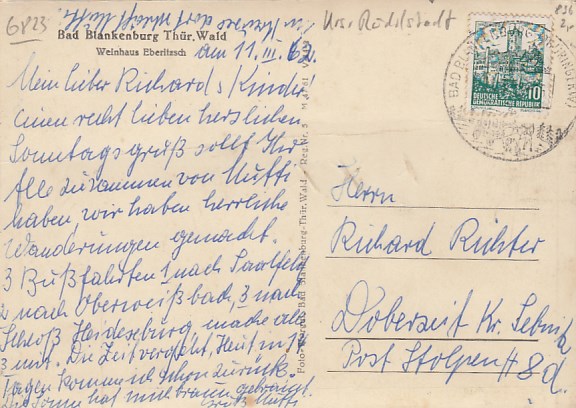 6823
Krs. Rudolstadt
Bad Blankenburg Thür. Wald
Weinhaus Eberitzsch
am 11. III. 62.
Mein lieber Richard s Kinder!
einen recht lieben herzlichen
Sonntagsgruß sollt Ihr
Alle zusammen von Mutti
haben wir haben herrliche
Wanderungen gemacht.
3 Bußfahrten 1 nach Saalfeld
2 nach Oberweißbach, 3 nach
Schloß Heidecksburg mache alle
3 mit. Die Zeit vergeht, Heut in 14
Tagen komme ich schon zurück.
Die Sonne hat mich braun gebrannt.
Mutti
DEUTSCHE
DEMOKRATISCHE REPUBLIK
10
BAD BLANKENBURG
Herrn
Richard Richter
Doberzeit Kr. Sebnitz
Post Stolpen 8d.